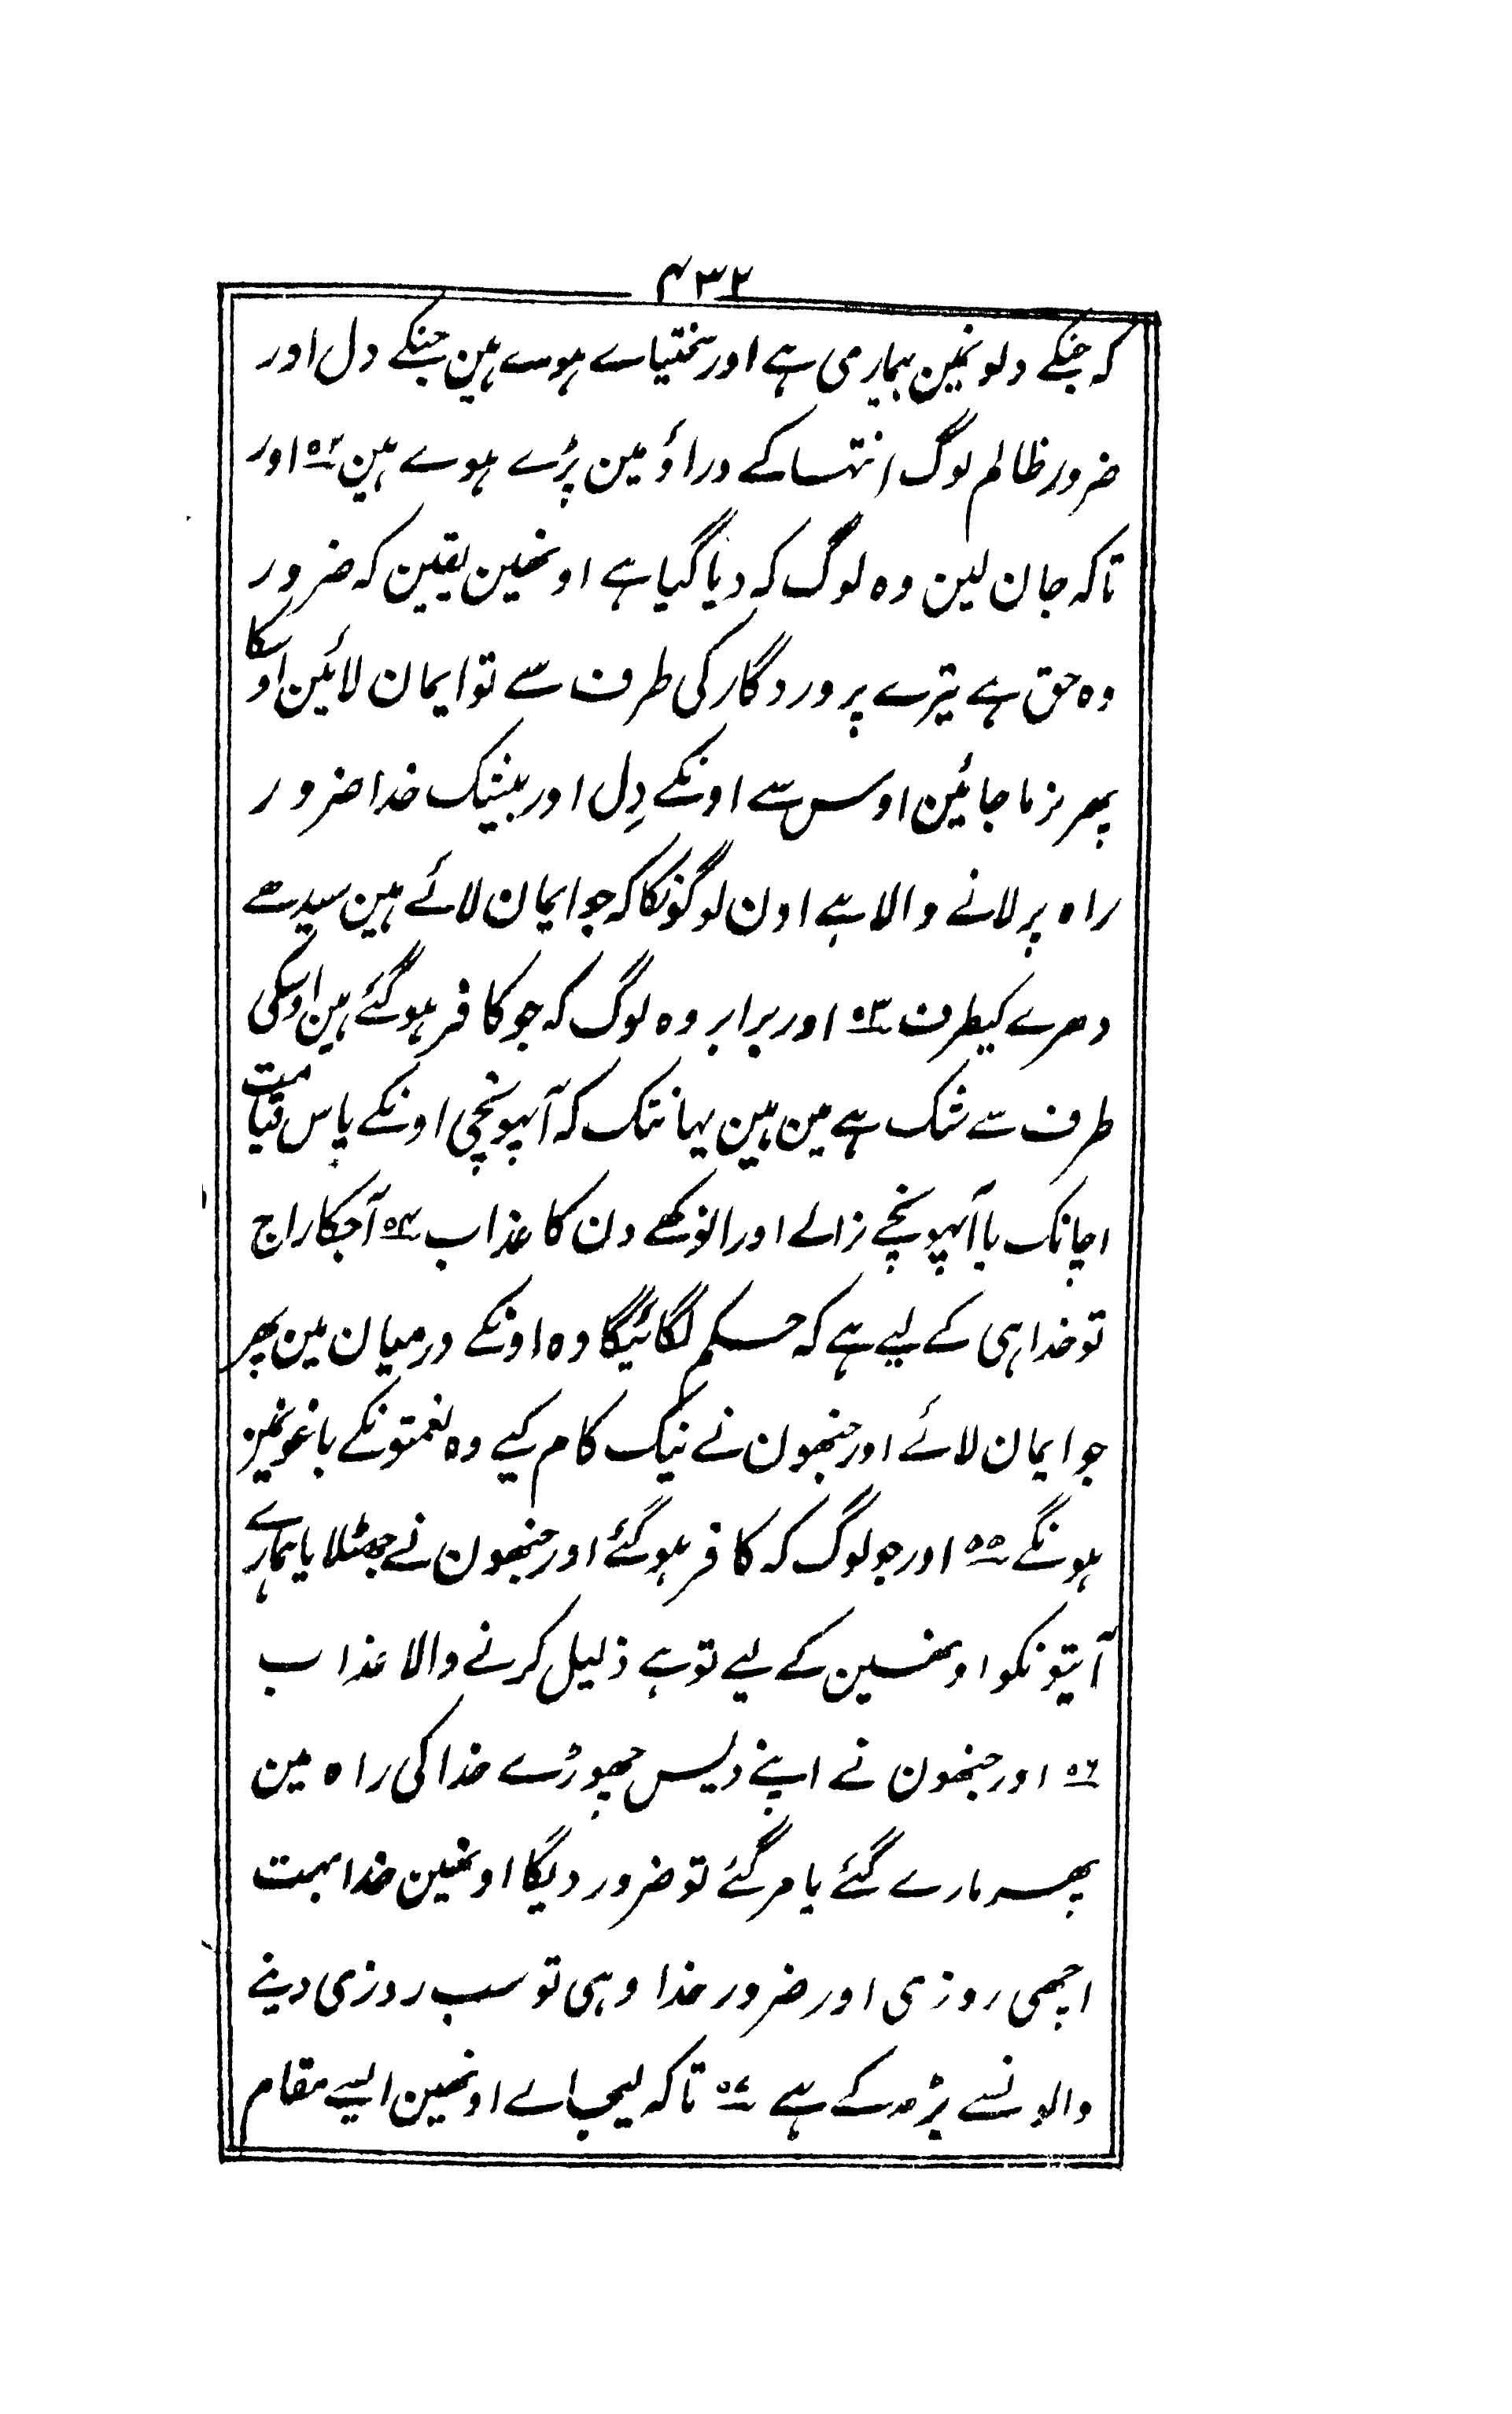 ۴۳۲
کہ جنکے دلونمین بیماری ہے اور سختیاے ہوے ہین جنکے دل اور
ضرور ظالم لوگ انتہا کے دراؤ مین پڑے ہوے ہین ۵۲ اور
تاکہ جان لین وہ لوگ کہ دیا گیا ہے اونھین یقین کہ ضرور
وہ حق ہے تیرے پروردگار کی طرف سے تو ایمان لائین اوسکا
پھر نرما جائین اوس سے اونکے دِل اور بیشک خدا ضرور
راہ پر لانے والا ہے اون لوگونکا کہ جو ایمان لائے ہین سیدھے
دھرے کیطرف ۵۳ اور برابر وہ لوگ کہ جو کافر ہو گئے ہین اوسکی
طرف سے شک ہے مین ہین یہانتک کہ آپہونچی اونکے پاس قیامت
اچانک یا آپہونچے نرالے اور انوکھے دن کا عذاب ۵۴ آجکا راج
تو خدا ہی کے لیے ہے کہ حکم لگائیگا وہ اونکے درمیان مین پھر
جو ایمان لائے اور جنھون نے نیک کام کیے وہ نعمتونکے باغونمین
ہونگے ۵۵ اور جو لوگ کہ کافر ہو گئے اور جنھون نے جھٹلایا ہمارے
آیتونکو اونھین کے لیے تو ہے ذلیل کرنے والا عذاب
۵۶ اور جنھون نے اپنے دیس چھوڑے خدا کی راہ مین
پھر مارے گئے یا مر گئے تو ضرور دیگا اونھین خدا بہت
اچھی روزی اور ضرور خدا وہی تو سب روزی دینے
والونسے بڑھ کے ہے ۵۷ تاکہ لیجاے اونھین ایسے مقام